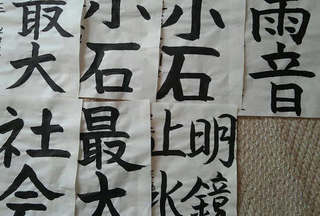 雨音
小石
小石
最大
明鏡
止水
最大
社会